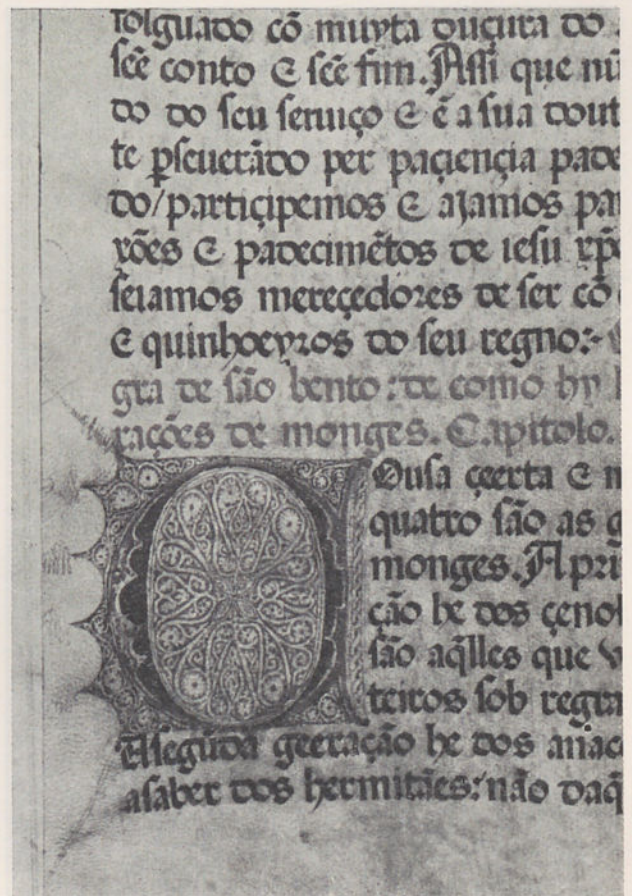 folguado cõ muyta duçura do
sẽe conto E sẽe fim. Assi que nũ
do do seu seruiço E ẽ a sua dout
te pseuerãdo per paçiençia pade
do/partiçipemos E ajamos pa
xões E padecimẽtos de iesu xp̃o
seiamos mereçedores de ser cõ
E quinhoeyros do seu regno:-
gra de são bento: de como hy
rações de monges. Capitolo.
Ousa çerta E m
quatro são as g
monges. A pri
ção he dos çeno
são aq̃lles que v
teiros sob regra
A segũda geeração he dos anac
asaber dos hermitães: não daq̃